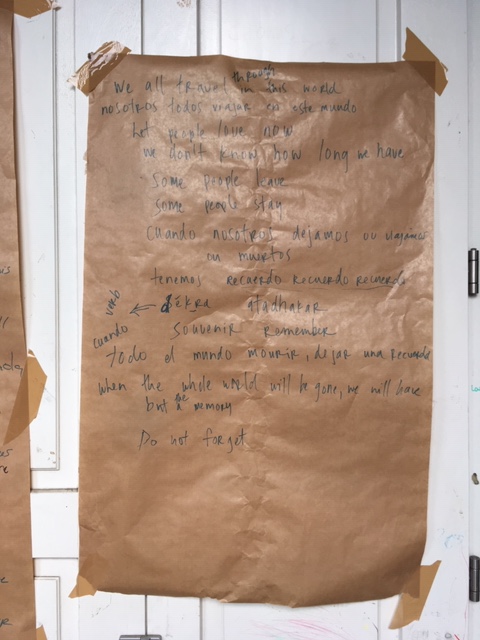 We all travel through in this world
nosotros todos viajar en este mundo
Let people love now
we don't know how long we have
Some people leave
some people stay
Cuando nosotros dejamos ou viajamos
ou muertos
tenemos recuerdo recuerdo recuerdo
verb ← dékra atadhakar
cuando souvenir remember
todo el mundo mourir, dejar una recuerdo
when the whole world will be gone, we will have
but the a memory
Do not forget